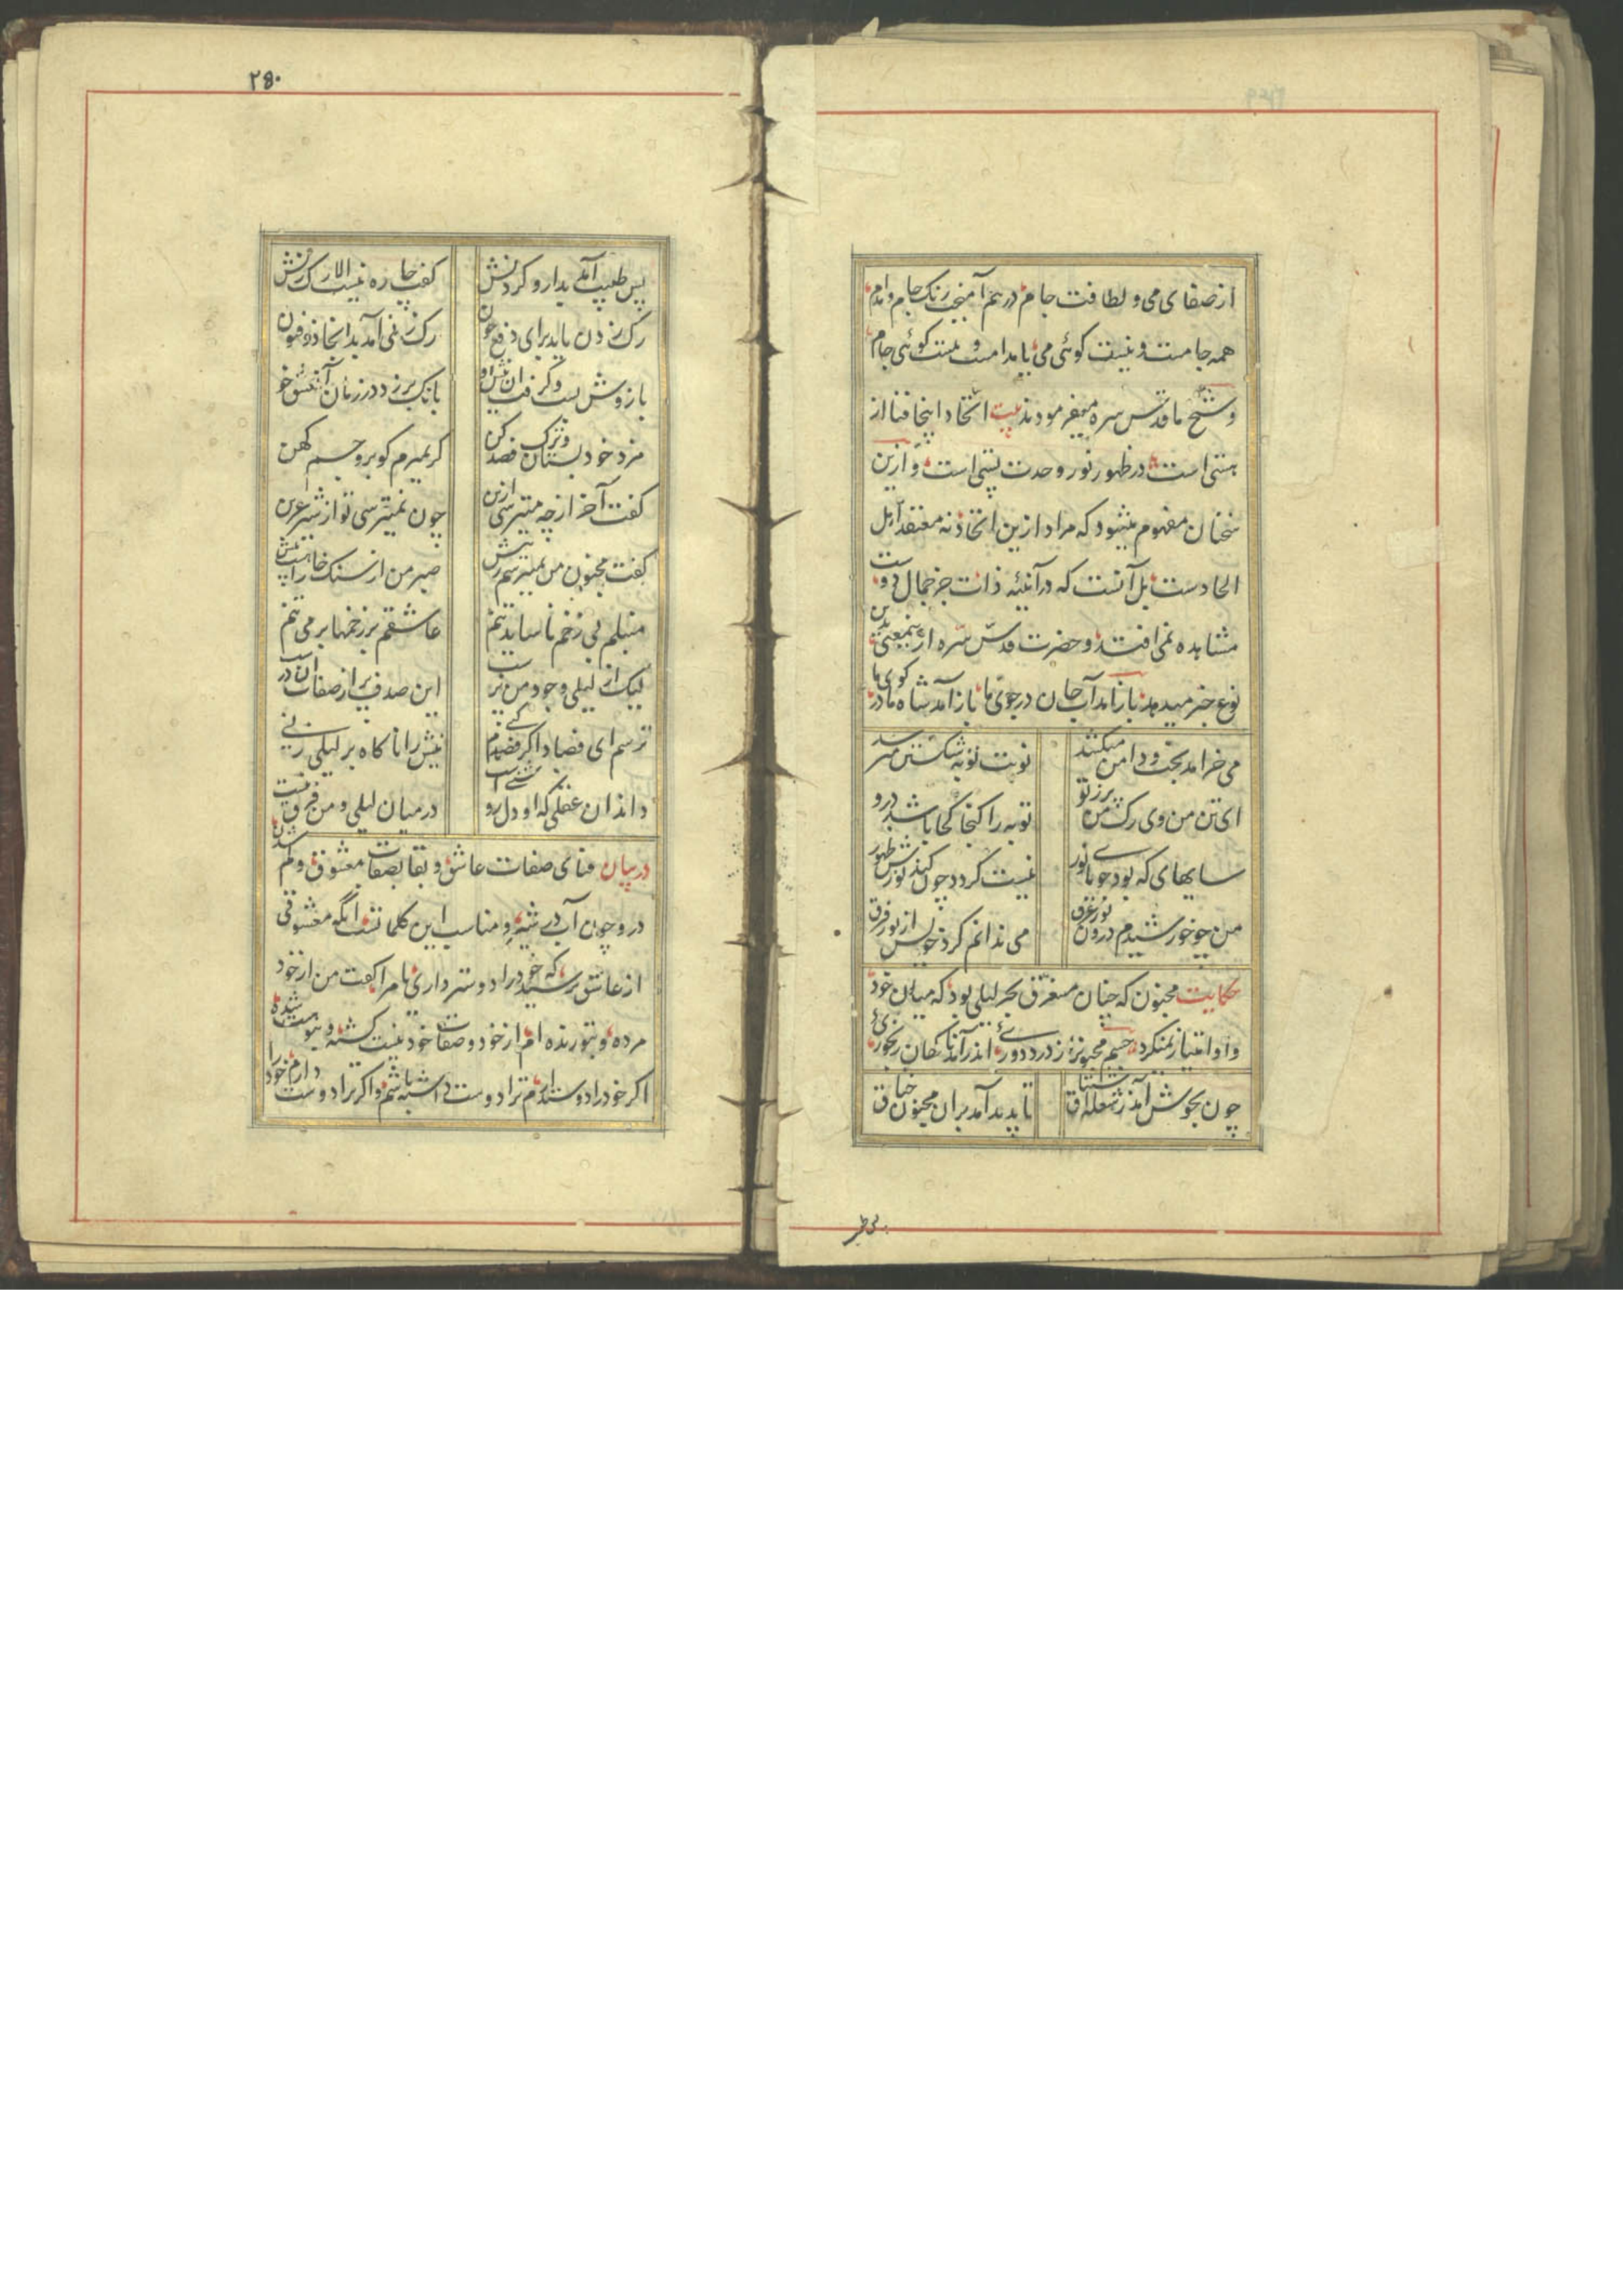 ۲۴۹
از صفای می و لطافت جام در هم آمیخت رنک جام و مدام
همه جامست و نیست کوئی می یا مدامست و نیست کوئی جام
و شیخ ما قدس سره میفرمودند بیت اتحاد اینجا فنا از
هستی است در ظهور نور وحدت پستی است و ازین
سخنان مفهوم میشود که مراد ازین اتحاد نه معتقد اهل
الحادست بل آنست که در آئینه ذات جز جمال دوست
مشاهده نمی افتد و حضرت قدس سره از ینمعنی بدین
نوع خبر میدهد باز آمد آب جان در جوی ما باز آمد شاه ما در کوی ما
می خرامد بخت و دامن میکشد نوبت توبه شکستن میرسد
ای تن من وی رک من پر ز تو توبه را کنجا کجا باشد درو
سایهای که بود جویای نور نیست کردد چون کند نورش ظهور
من چو خورشیدم درون نور غرق می ندانم کرد خویش از نور فرق
حکایت مجنون که چنان مستغرق بحر لیلی بود که میان خود
و او امتیاز نمیکرد جسم مجنونرا ز درد دوریٔ اندر آمد ناکهان رنجوریٔ
چون بجوش آمد ز شعله اشتیاق تا پدید آمد بران مجنون خناق
پس طبیب
۲۵۰
پس طبیب آمد بدارو کردنش کفت چاره نیست الا رک زنش
رک زدن باید برای دفع خون رک زنی آمد بدانجا ذو فنون
بازوش بست و کرفت آن نیش او بانک بر زد در زمان آن عشق خو
مزد خود بستان و ترک فصد کن کر بمیرم کو برو جسم کهن
کفت آخر از چه میترسی ازین چون نمیترسی تو از شیر عرین
کفت مجنون من نمیترسم ز نیش صبر من از سنک خارا هست بیش
منبلم بی زخم ناساید تنم عاشقم بر زخمها بر می تنم
لیک از لیلی وجود من پرست این صدف پر از صفات آن درست
ترسم ای فصاد اکر فصدم کنی نیش را ناکاه بر لیلی زنی
داند آن عقلی که او دل روشنی است در میان لیلی و من فرق نیست
در بیان فنای صفات عاشق و بقا بصفات معشوق و کم شدن
درو چون آب در شیشه و مناسب این کلماتست آنکه معشوقی
از عاشق پرسید که خود را دوستر داری یا مرا کفت من از خود
مرده و بتو زنده ام از خود و صفات خود نیست کشته و بتو هست شده
اکر خود را دوست دارم ترا دوست داشته باشم و اکر ترا دوست دارم خود را